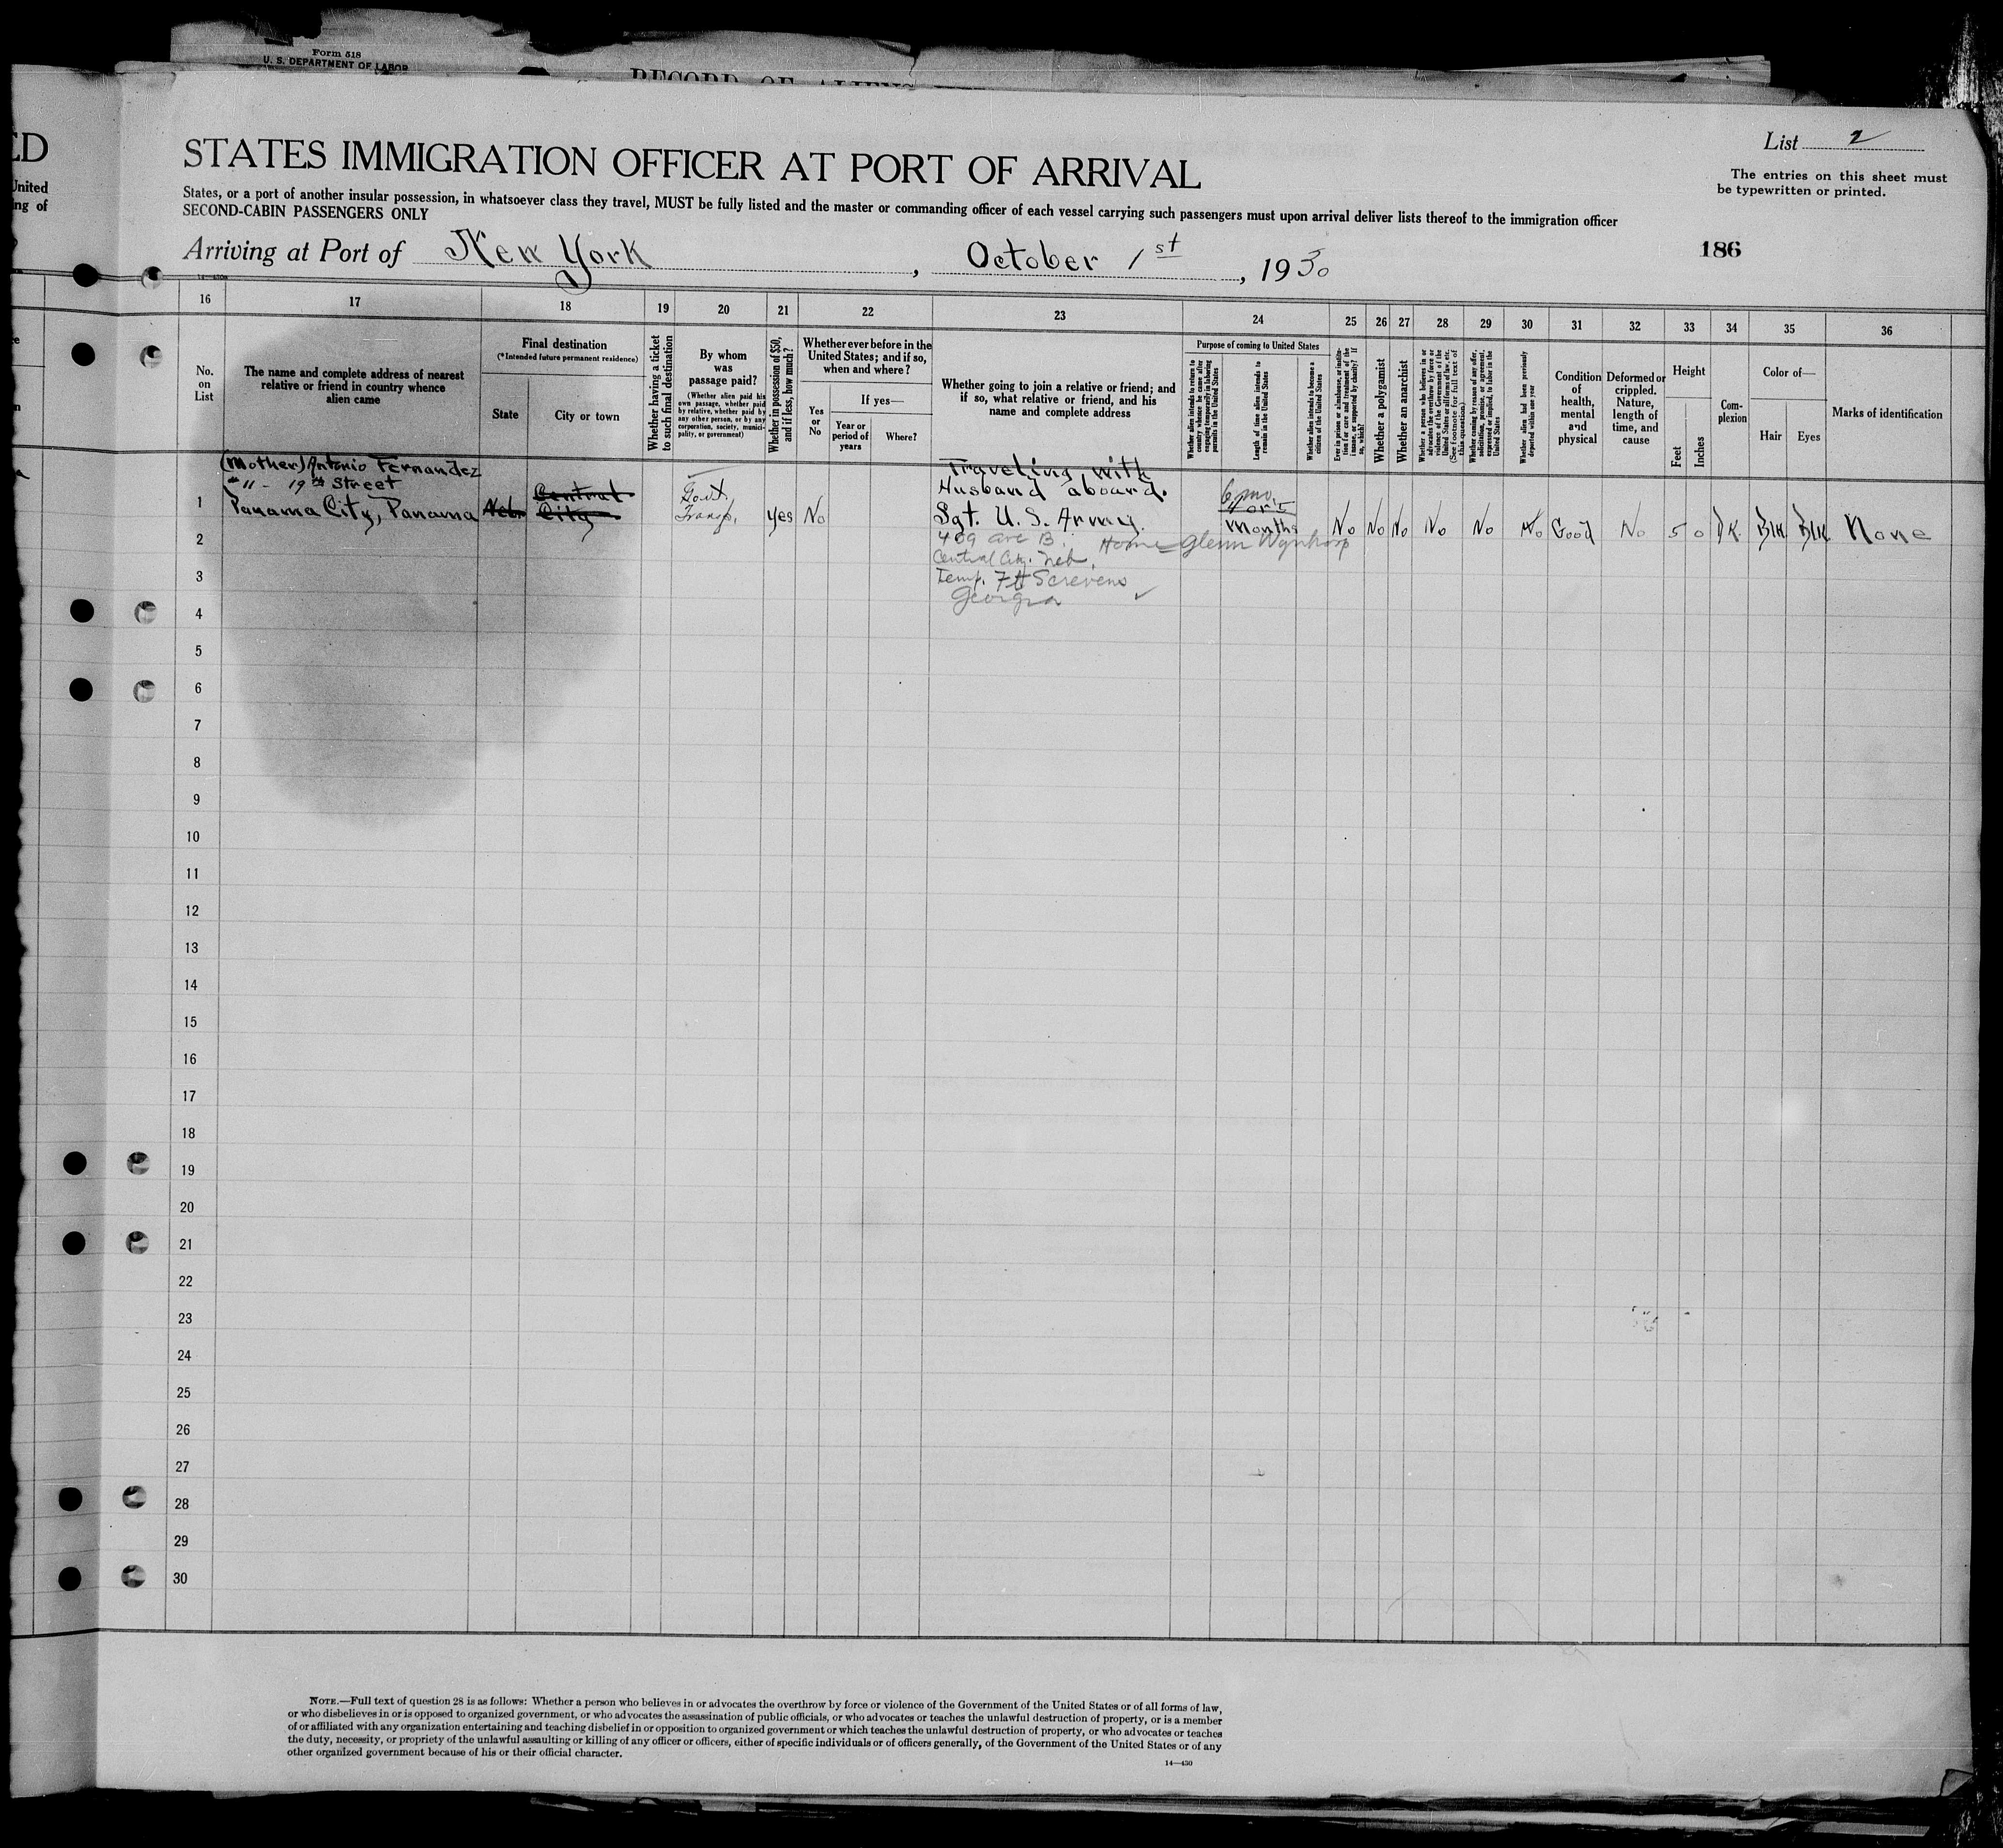 Form 518
U. S. DEPARTMENT OF LABOR
RECORD OF ALIENS
ED
United
ing of
List 2
The entries on this sheet must
be typewritten or printed.
STATES IMMIGRATION OFFICER AT PORT OF ARRIVAL
States, or a port of another insular possession, in whatsoever class they travel, MUST be fully listed and the master or commanding officer of each vessel carrying such passengers must upon arrival deliver lists thereof to the immigration officer
SECOND-CABIN PASSENGERS ONLY
186
Arriving at Port of New York, October 1st, 1930
14-430a
16 17 18 19 20 21 22 23 24 25 26 27 28 29 30 31 32 33 34 35 36
No.
on
List
The name and complete address of nearest
relative or friend in country whence
alien came
Final destination
(*Intended future permanent residence)
State
City or town
Whether having a ticket
to such final destination
By whom
was
passage paid?
(Whether alien paid his
own passage, whether paid
by relative, whether paid by
any other person, or by any
corporation, society, munici-
pality, or government)
Whether in possession of $50,
and if less, how much?
Whether ever before in the
United States; and if so,
when and where?
Yes
or
No
If yes—
Year or
period of
years
Where?
Whether going to join a relative or friend; and
if so, what relative or friend, and his
name and complete address
Purpose of coming to United States
Whether alien intends to return to
country whence he came after
engaging temporarily in laboring
pursuits in the United States
Length of time alien intends to
remain in the United States
Whether alien intends to become a
citizen of the United States
Ever in prison or almshouse, or institu-
tion for care and treatment of the
insane, or supported by charity? If
so, which?
Whether a polygamist
Whether an anarchist
Whether a person who believes in or
advocates the overthrow by force or
violence of the Government of the
United States or all forms of law, etc.
(See footnote for full text of
this question.)
Whether coming by reason of any offer,
solicitation, promise, or agreement,
expressed or implied, to labor in the
United States
Whether alien had been previously
deported within one year
Condition
of
health,
mental
and
physical
Deformed or
crippled.
Nature,
length of
time, and
cause
Height
Feet
Inches
Com-
plexion
Color of—
Hair
Eyes
Marks of identification
(Mother) Antonio Fernandez
#11 - 19th Street
1 Panama City, Panama
Nebr.
Central
City
Govt.
Transp.
Yes
No
Traveling with
Husband aboard.
Sgt. U. S. Army.
409 Ave B.
Home = Glenn
Central City. Neb.
Temp. Ft Screvens
Georgia
6 mo.
4 or 5
Months
No No No No No No Good No 5 0 DK. Blk Blk None
2
3
4
5
6
7
8
9
10
11
12
13
14
15
16
17
18
19
20
21
22
23
24
25
26
27
28
29
30
NOTE.—Full text of question 28 is as follows: Whether a person who believes in or advocates the overthrow by force or violence of the Government of the United States or of all forms of law,
or who disbelieves in or is opposed to organized government, or who advocates the assassination of public officials, or who advocates or teaches the unlawful destruction of property, or is a member
of or affiliated with any organization entertaining and teaching disbelief in or opposition to organized government or which teaches the unlawful destruction of property, or who advocates or teaches
the duty, necessity, or propriety of the unlawful assaulting or killing of any officer or officers, either of specific individuals or of officers generally, of the Government of the United States or of any
other organized government because of his or their official character.
14—430